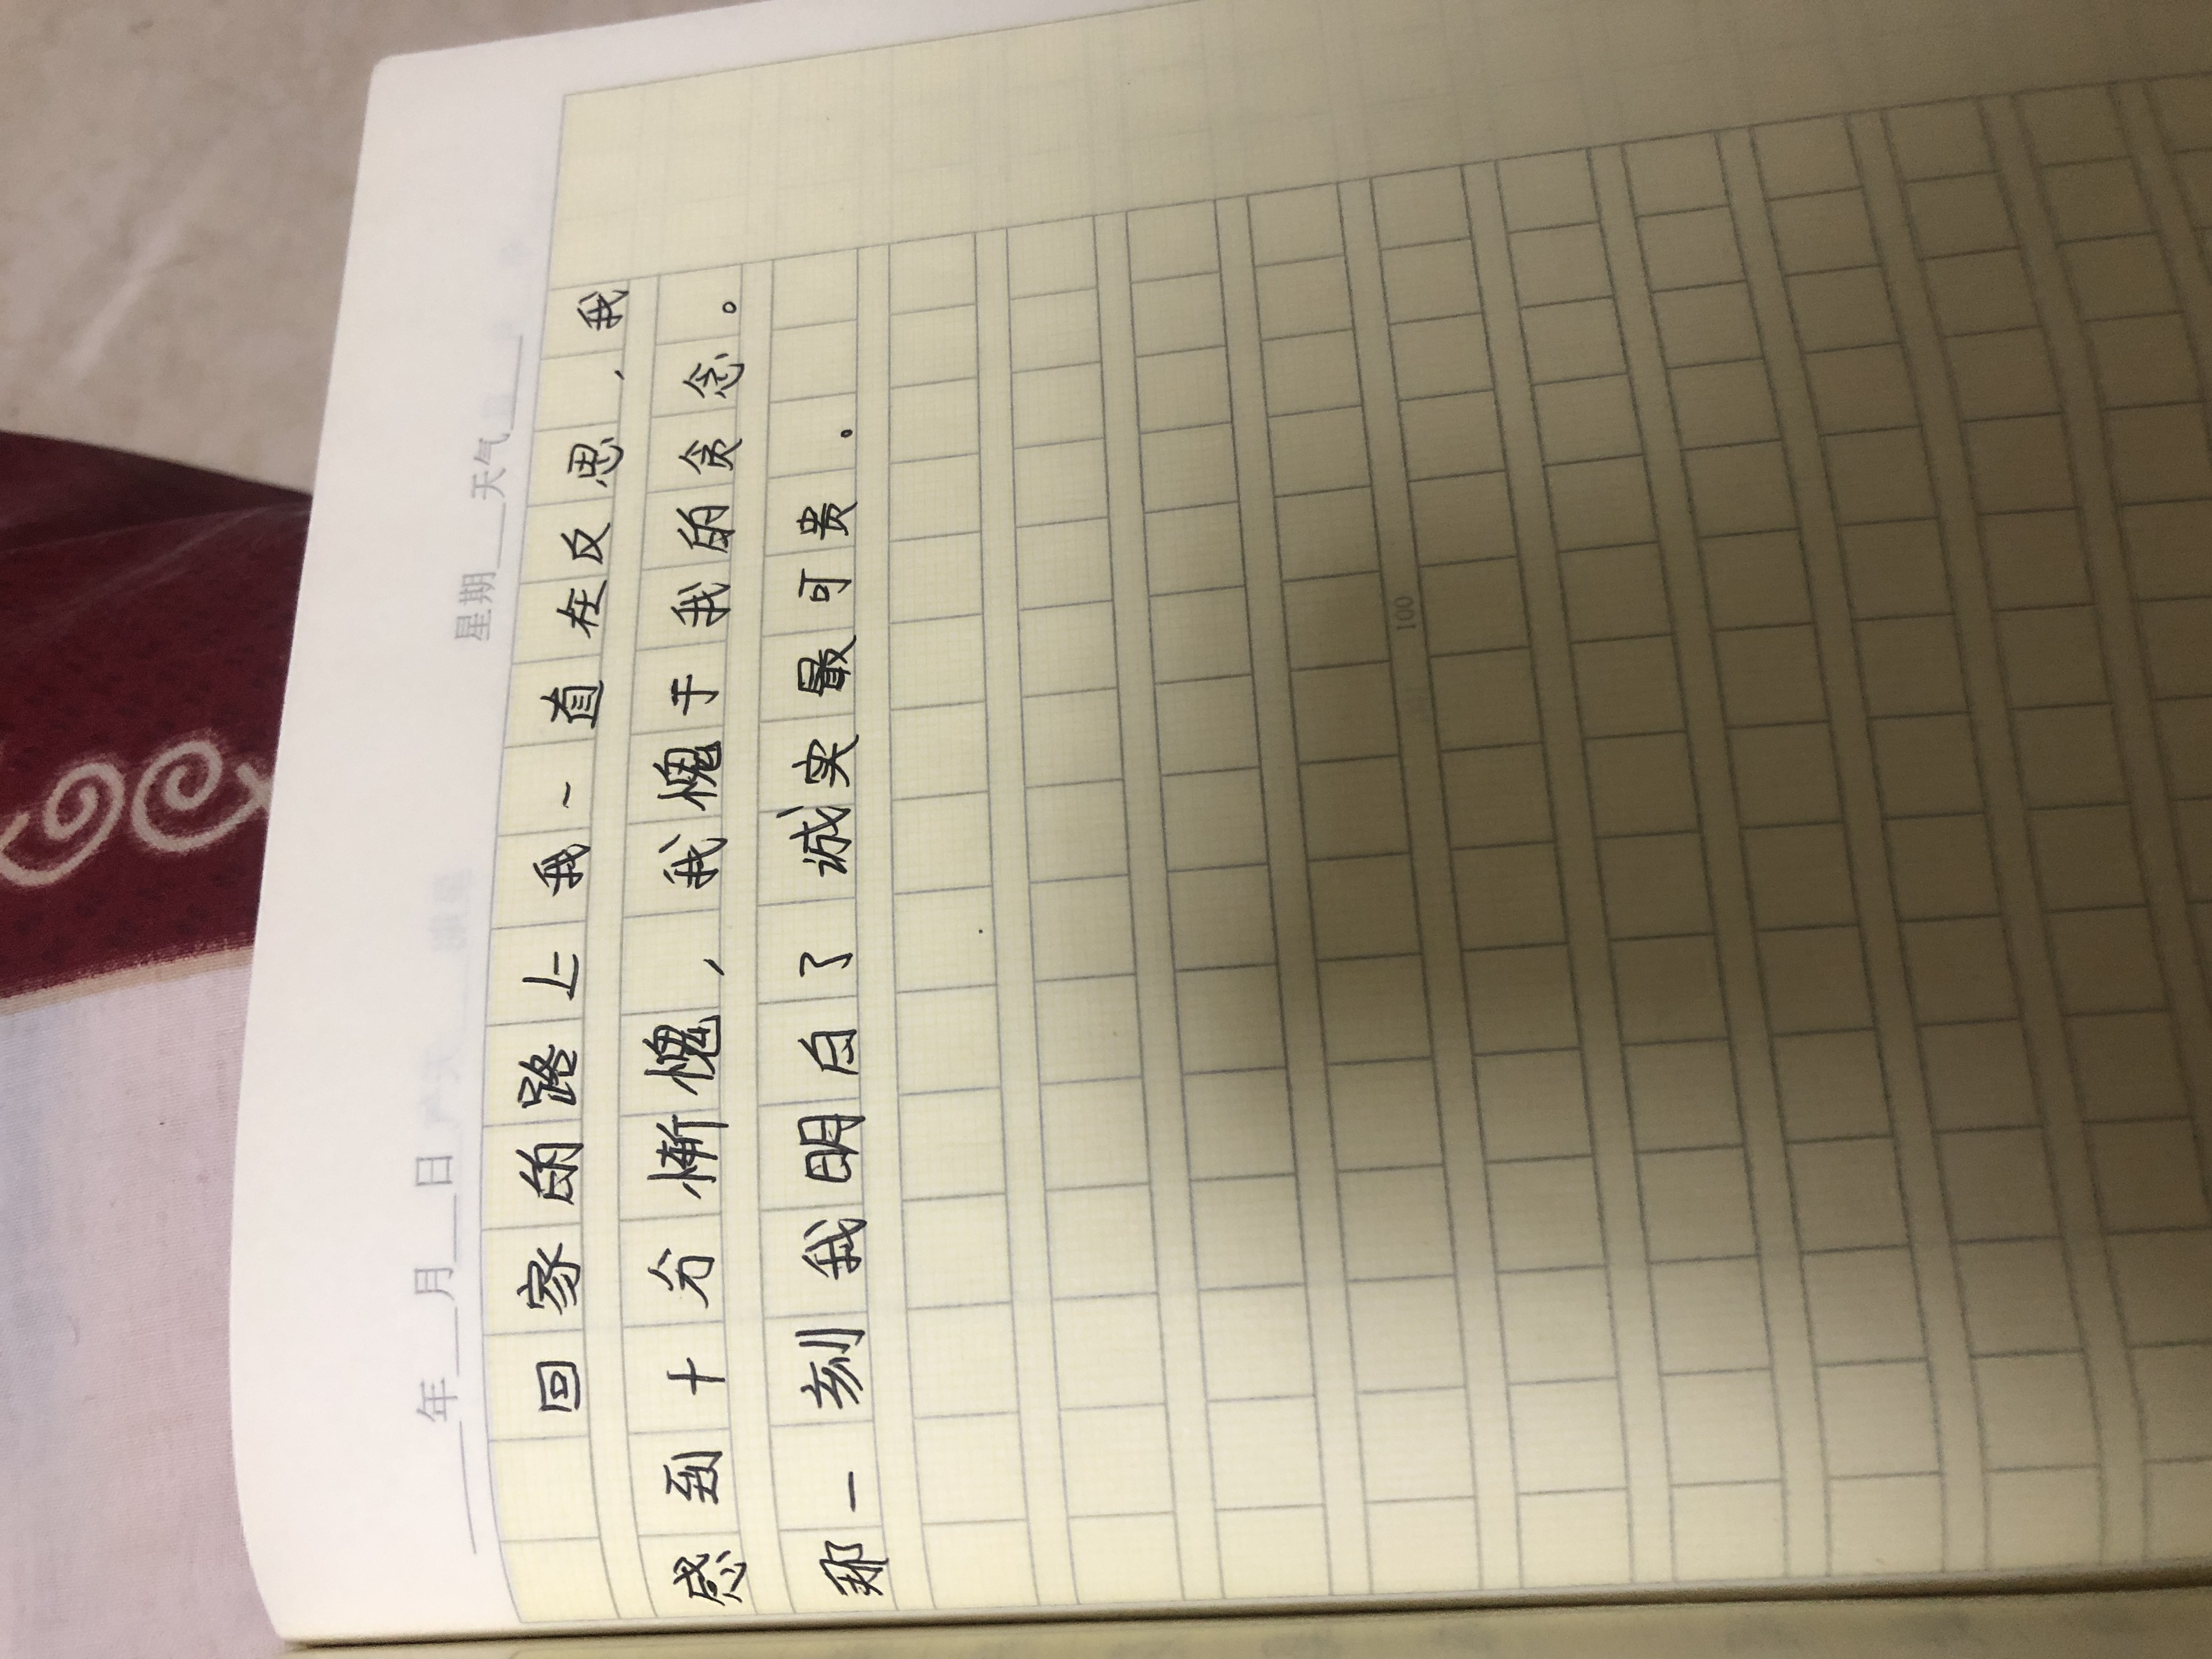 ____年___月___日 星期___天气___
回家的路上我一直在反思，我
感到十分惭愧，我愧于我的贪念。
那一刻我明白了诚实最可贵。
100